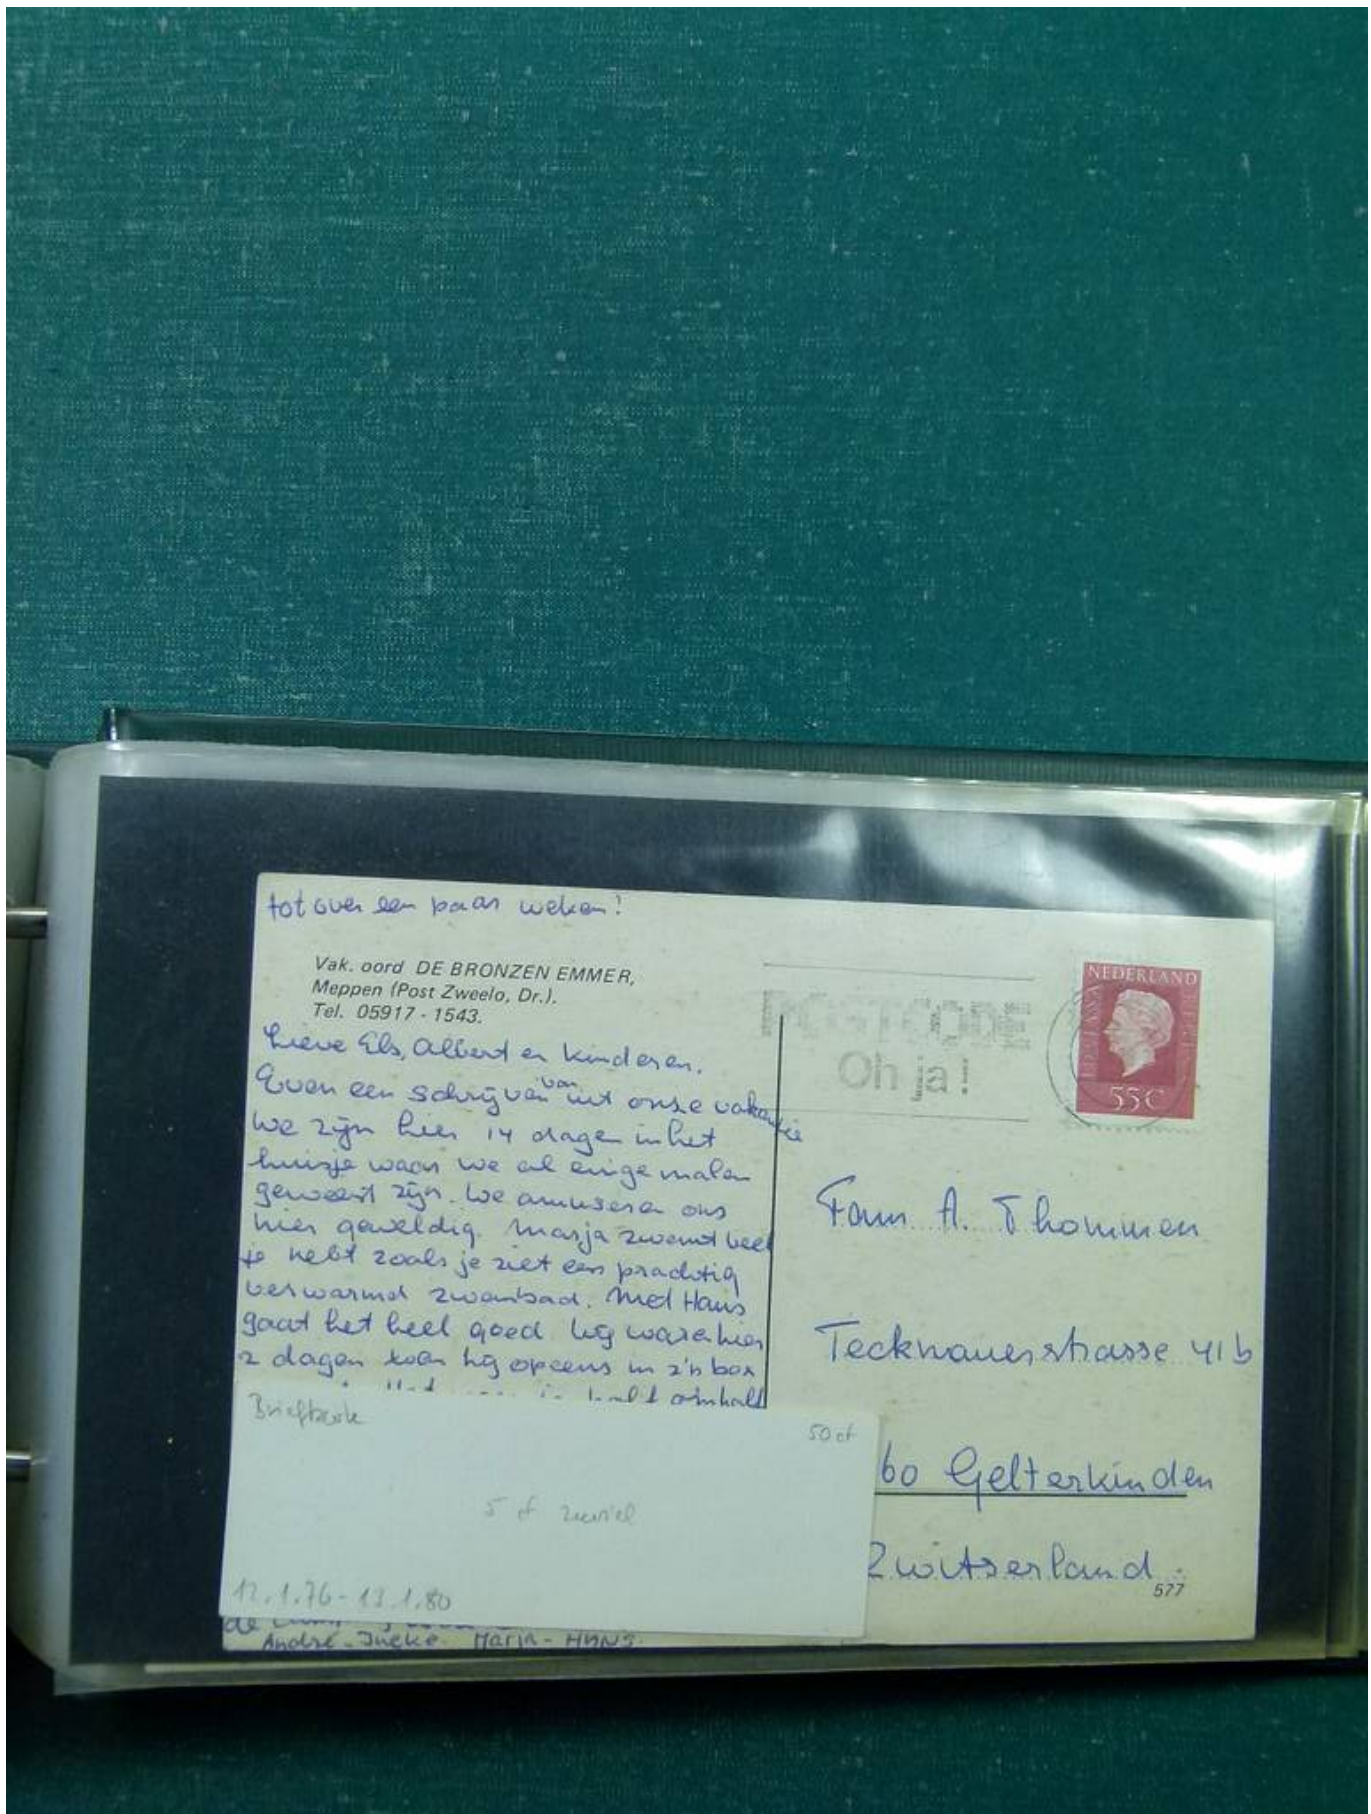 tot over een paar weken!
Vak. oord DE BRONZEN EMMER,
Meppen (Post Zweelo, Dr.).
Tel. 05917 - 1543.
Lieve Els, Albert en kinderen.
Even een schrijven van uit onze vakantie
We zijn hier 14 dagen in het
huisje waar we al enige malen
geweest zijn. We amuseren ons
hier geweldig. Marja zwemt veel
je hebt zoals je ziet een prachtig
verwarmd zwembad. Met Hans
gaat het heel goed. Wij waren hier
2 dagen toen hij opeens in z'n box
omhalf
de
André - Ineke Marja - HANS.
POSTCODE
Oh ja!
NEDERLAND
55c
Fam A. Thommen
Tecknauerstrasse 41b
60 Gelterkinden
Zwitserland.
577
Briefkarte
50 ct
5 ct zuviel
12.1.76 - 13.1.80